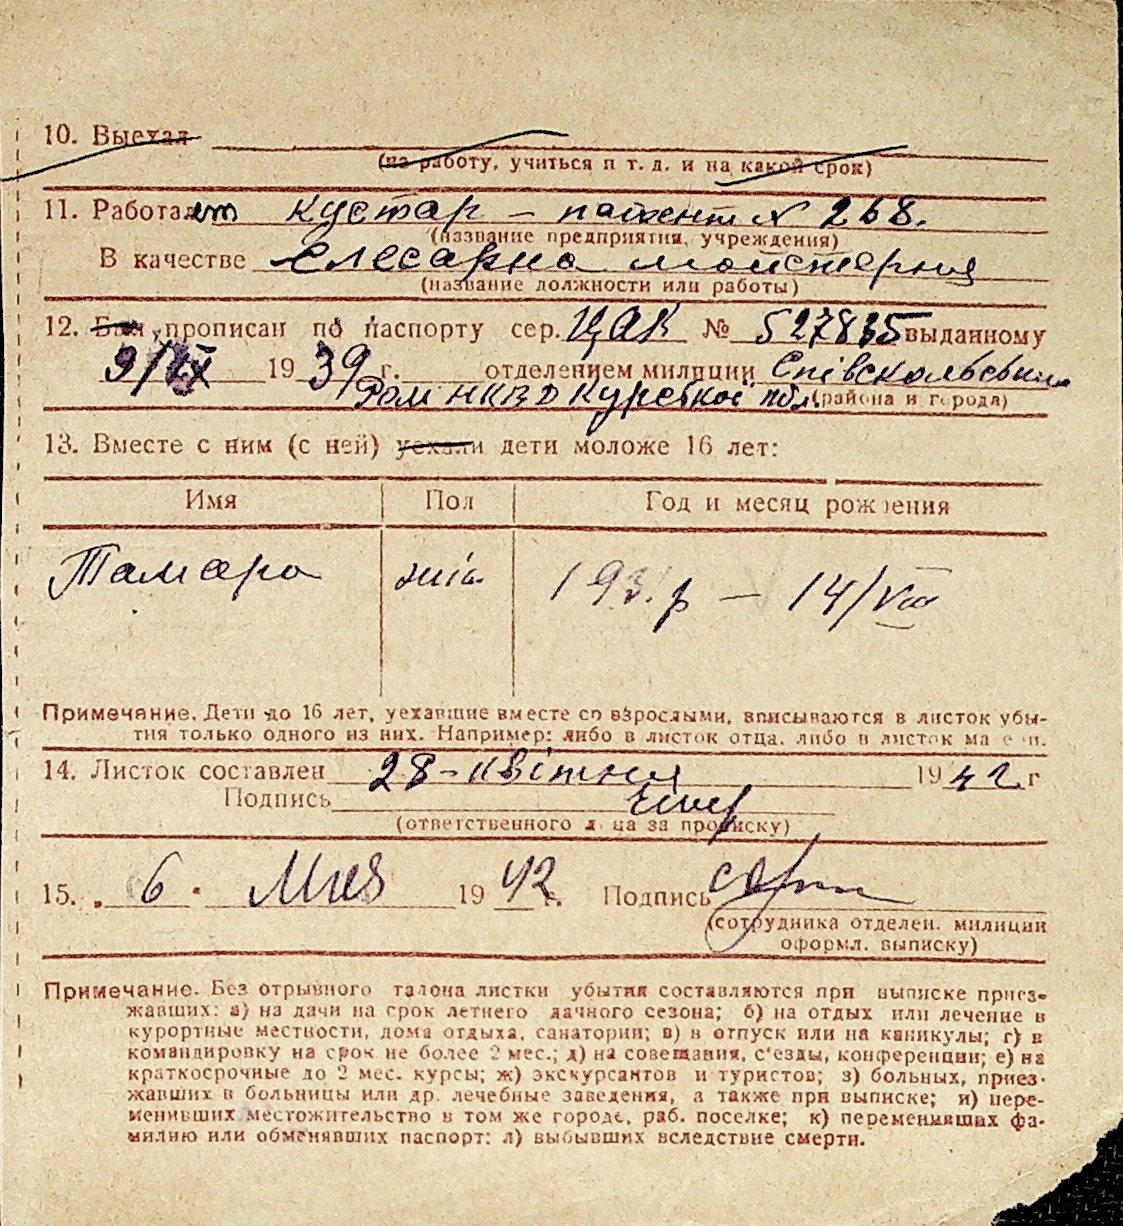 10. Выехал
(на работу, учиться и т. д. и на какой срок)
11. Работает кустар – патент № 268.
(название предприятия, учреждения)
В качестве слесарна майстерня
(название должности или работы)
12. Был прописан по паспорту сер. ЦАК № 527835 выданному
9/IX 1939 г. отделением милиции
РОМ НКВД Курської обл. (района и города)
13. Вместе с ним (с ней) уехали дети моложе 16 лет:
Имя Пол Год и месяц рождения
Тамара жін. р – 14/VIII
Примечание. Дети до 16 лет, уехавшие вместе со взрослыми, вписываются в листок убы-
тия только одного из них. Например: либо в листок отца, либо в листок матери.
14. Листок составлен 28 – квітня 1942 г
Подпись
(ответственного лица за прописку)
15. „ 6 " Мая 1942 г. Подпись
(сотрудника отделен. милиции
оформл. выписку)
Примечание. Без отрывного талона листки убытия составляются при выписке приез-
жавших: а) на дачи на срок летнего дачного сезона; б) на отдых или лечение в
курортные местности, дома отдыха, санатории; в) в отпуск или на каникулы; г) в
командировку на срок не более 2 мес.; д) на совещания, с'езды, конференции; е) на
краткосрочные до 2 мес. курсы; ж) экскурсантов и туристов; з) больных, приез-
жавших в больницы или др. лечебные заведения, а также при выписке; и) пере-
менивших местожительство в том же городе, раб. поселке; к) переменивших фа-
милию или обменявших паспорт; л) выбывших вследствие смерти.